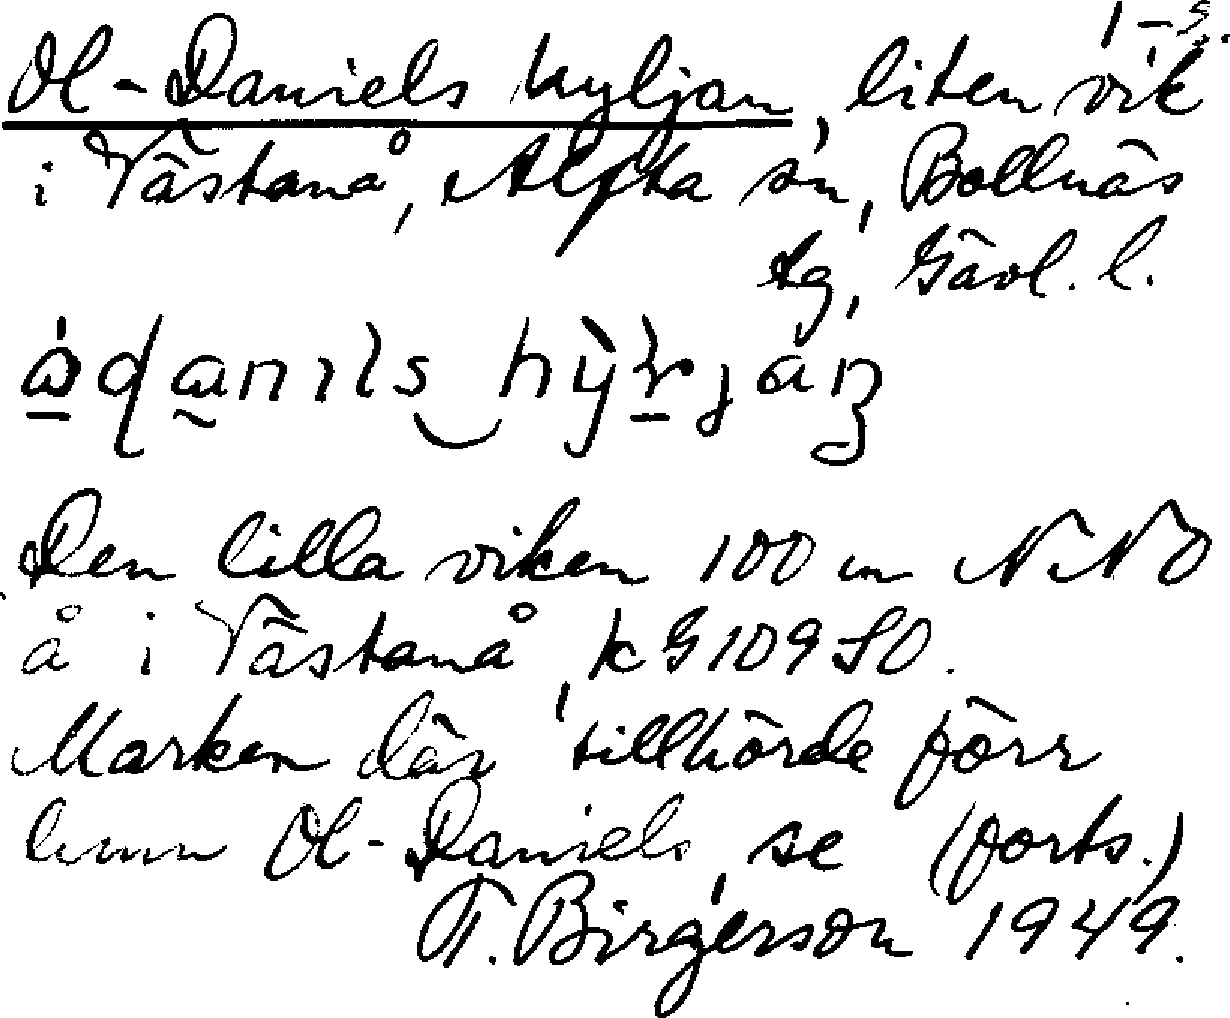 1–s.
Ol-Daniels hyljan, liten vik
i Västanå, Alfta sn, Bollnäs
tg, Gävl. l.
Den lilla viken 100 m NNO
å i Västanå, k G109SO.
Marken där tillhörde förr
hmn Ol-Daniels, se (forts.)
T. Birgerson 1949.